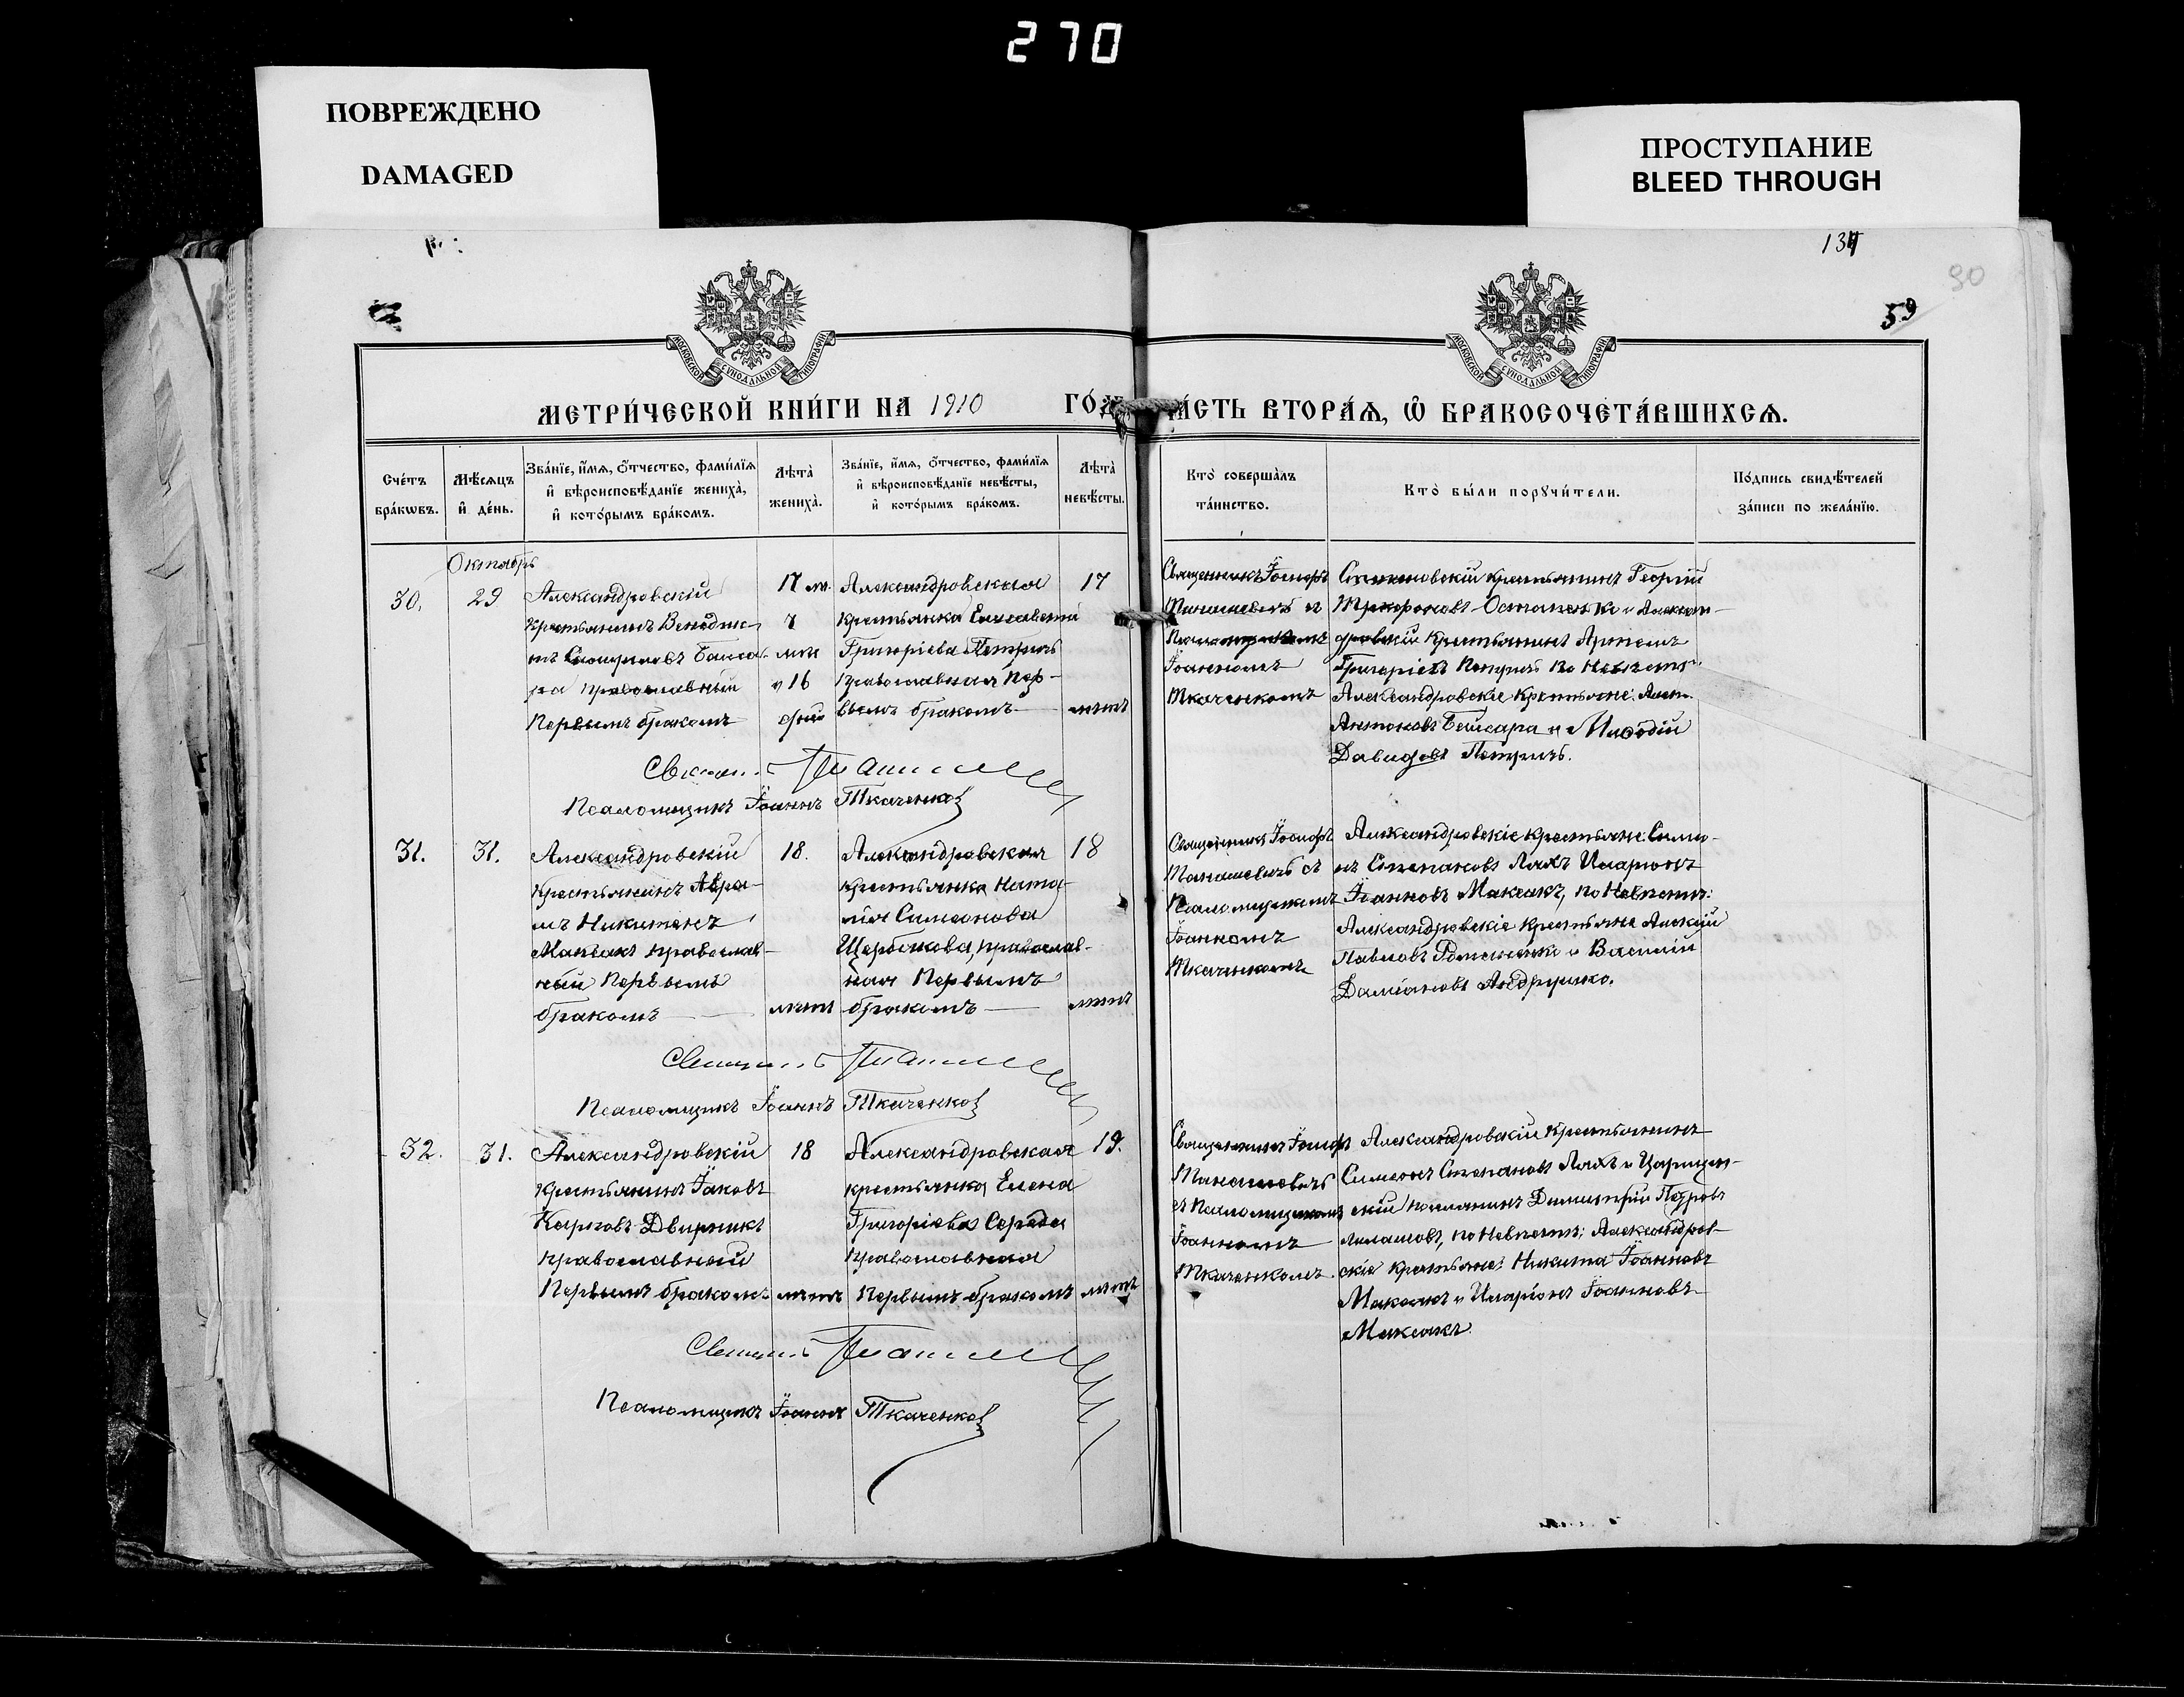 270
ПОВРЕЖДЕНО
DAMAGED
ПРОСТУПАНИЕ
BLEED THROUGH
90
59
МОСКОВСКОЙ СѴНОДАЛЬНОЙ ТИПОГРАФІИ
МОСКОВСКОЙ СѴНОДАЛЬНОЙ ТИПОГРАФІИ
МЕТРИ́ЧЕСКОЙ КНИ́ГИ НА 1910 ГО́Д
А́СТЬ ВТОРА́Я, Ѽ БРАКОСОЧЕТА́ВШИХСЯ.
Сче́тъ бра́кωвъ.
Мѣ́сяцъ и҆ де́нь.
Зва́нїе, и҆́мя, о҆́тчество, фами́лїя и҆ вѣроисповѣ́данїе жениха̀, и҆ кото́рымъ бра́комъ.
Лѣ́та̀ жениха̀.
Зва́нїе, и҆́мя, о҆́тчество, фами́лїя и҆ вѣроисповѣ́данїе невѣ́сты, и҆ кото́рымъ бра́комъ.
Лѣ́та̀ невѣ́сты.
Кто̀ соверша́лъ та́инство.
Кто̀ бы́ли порꙋчи́тели.
По́дпись свидѣ́телей за́писи по жела́нїю.
Октябрь
30.
29
Александровскій
крестьянинъ Венедик-
тъ
православный
Первымъ бракомъ
17 лѣ.
и 16
дней
Александровская
крестьянка Елисавета
Григоріева Петричъ
православная Пер-
вымъ бракомъ
17
лѣтъ
Священникъ Іосифъ
Манашевичъ съ
Псаломщикомъ
Іоанномъ
Ткаченкомъ
крестьянинъ Георгій
Остапенко и Алексан-
дровскій крестьянинъ Артемъ
Григоріевъ Петричъ по Невѣстѣ:
Александровскіе крестьяне:
Антоновъ Байсара и Меѳодій
Давидовъ Петричъ.
Псаломщикъ Іоаннъ Ткаченко
31.
31.
Александровскій
крестьянинъ Авра-
мъ Никитинъ
Максакъ православ-
ный Первымъ
бракомъ
18.
лѣтъ
Александровская
крестьянка Ната-
лія Симеонова
Щербакова, православ-
ная Первымъ
бракомъ
18
лѣтъ
Священникъ Іосифъ
Манашевичъ съ
Псаломщикомъ
Іоанномъ
Ткаченкомъ
Александровскіе крестьяне: Симео-
нъ Степановъ Ляхъ Иларіонъ
Іоанновъ Максакъ, по Невѣстѣ:
Александровскіе крестьяне Алексій
Павловъ Романенко и Василій
Даміановъ Андрущко.
Псаломщикъ Іоаннъ Ткаченко
32.
31.
Александровскій
крестьянинъ Іаковъ
Карповъ Дворникъ
православный
Первымъ бракомъ
18
лѣтъ
Александровская
крестьянка Елена
Григоріева Середа
православная
Первымъ бракомъ
19.
лѣтъ
Священникъ Іосифъ
Манашевичъ
съ Псаломщикомъ
Іоанномъ
Ткаченкомъ.
Александровскій крестьянинъ
Симеонъ Степановъ Ляхъ и Царицын-
скій Димитрій Петровъ
по Невѣстѣ: Александров-
скіе крестьяне: Никита Іоанновъ
Максакъ и Иларіонъ Іоанновъ
Максакъ.
Псаломщикъ Іоаннъ Ткаченко